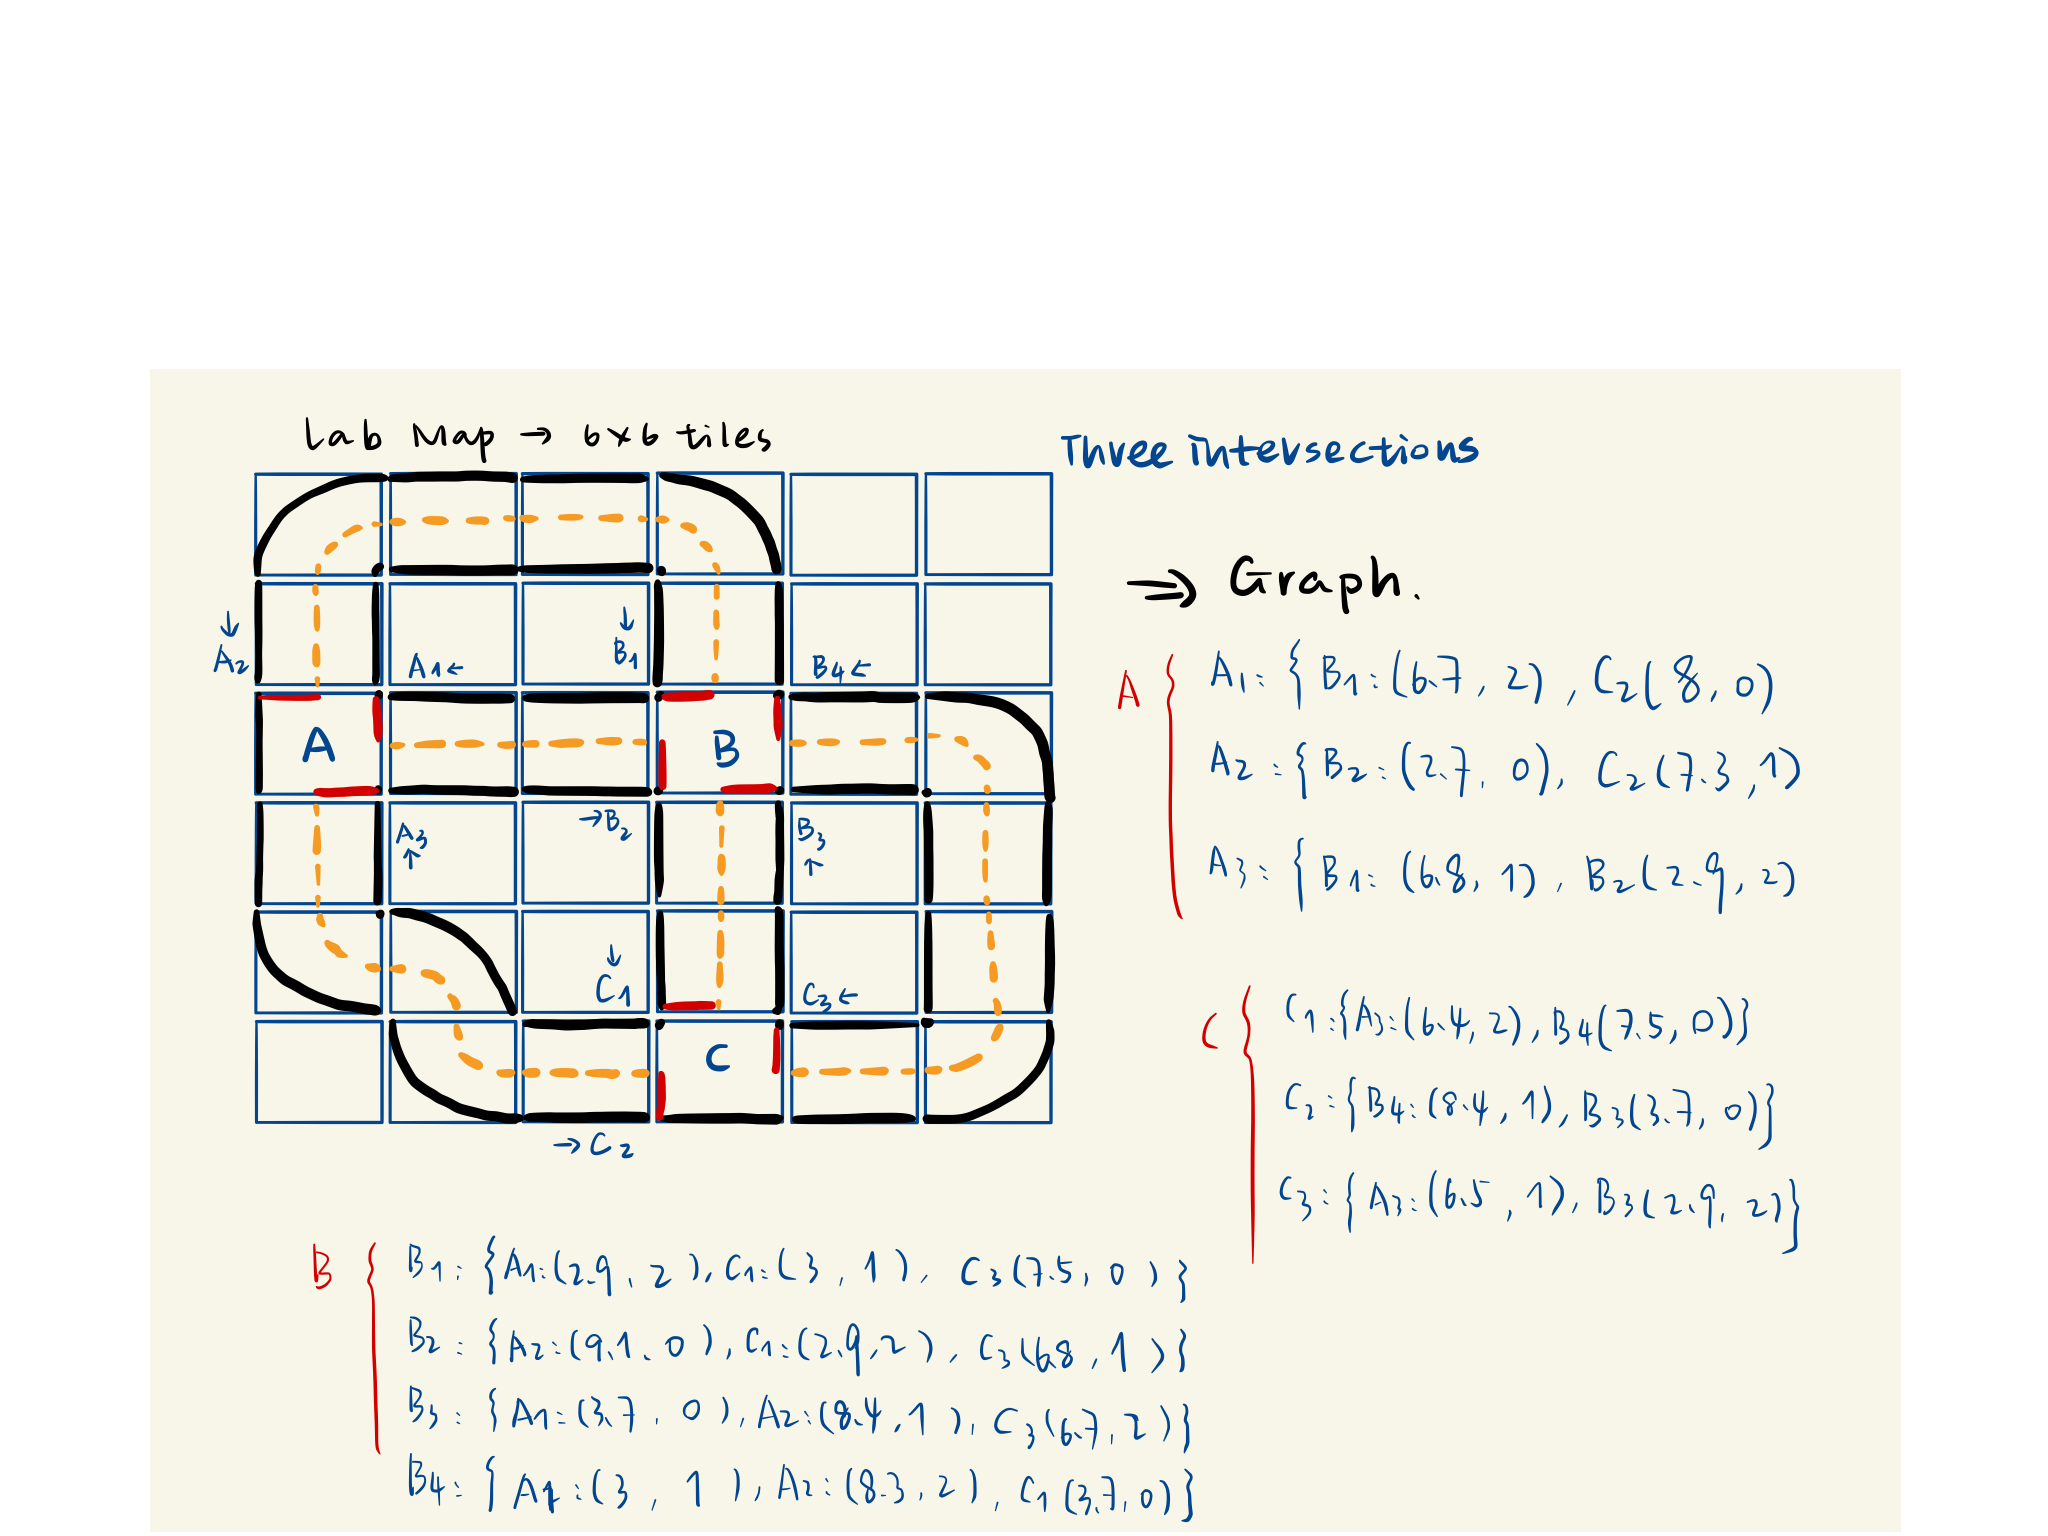 Lab Map → 6×6 tiles
Three intersections
⇒ Graph.
↓
A2
A1←
↓
B1
B4←
A
B
A3
↑
→B2
B3
↑
↓
C1
C3←
C
→C2
A {
A1: { B1:(6.7, 2), C2(8, 0)
A2: { B2:(2.7, 0), C2(7.3, 1)
A3: { B1:(6.8, 1), B2(2.9, 2)
C {
C1:{A3:(6.4, 2), B4(7.5, 0)}
C2:{B4:(8.4, 1), B3(3.7, 0)}
C3:{A3:(6.5, 1), B3(2.9, 2)}
B {
B1: {A1:(2.9, 2), C1:(3, 1), C3(7.5, 0)}
B2: {A2:(9.1, 0), C1:(2.9, 2), C3(6.8, 1)}
B3: {A1:(3.7, 0), A2:(8.4, 1), C3(6.7, 2)}
B4: {A1:(3, 1), A2:(8.3, 2), C1(3.7, 0)}